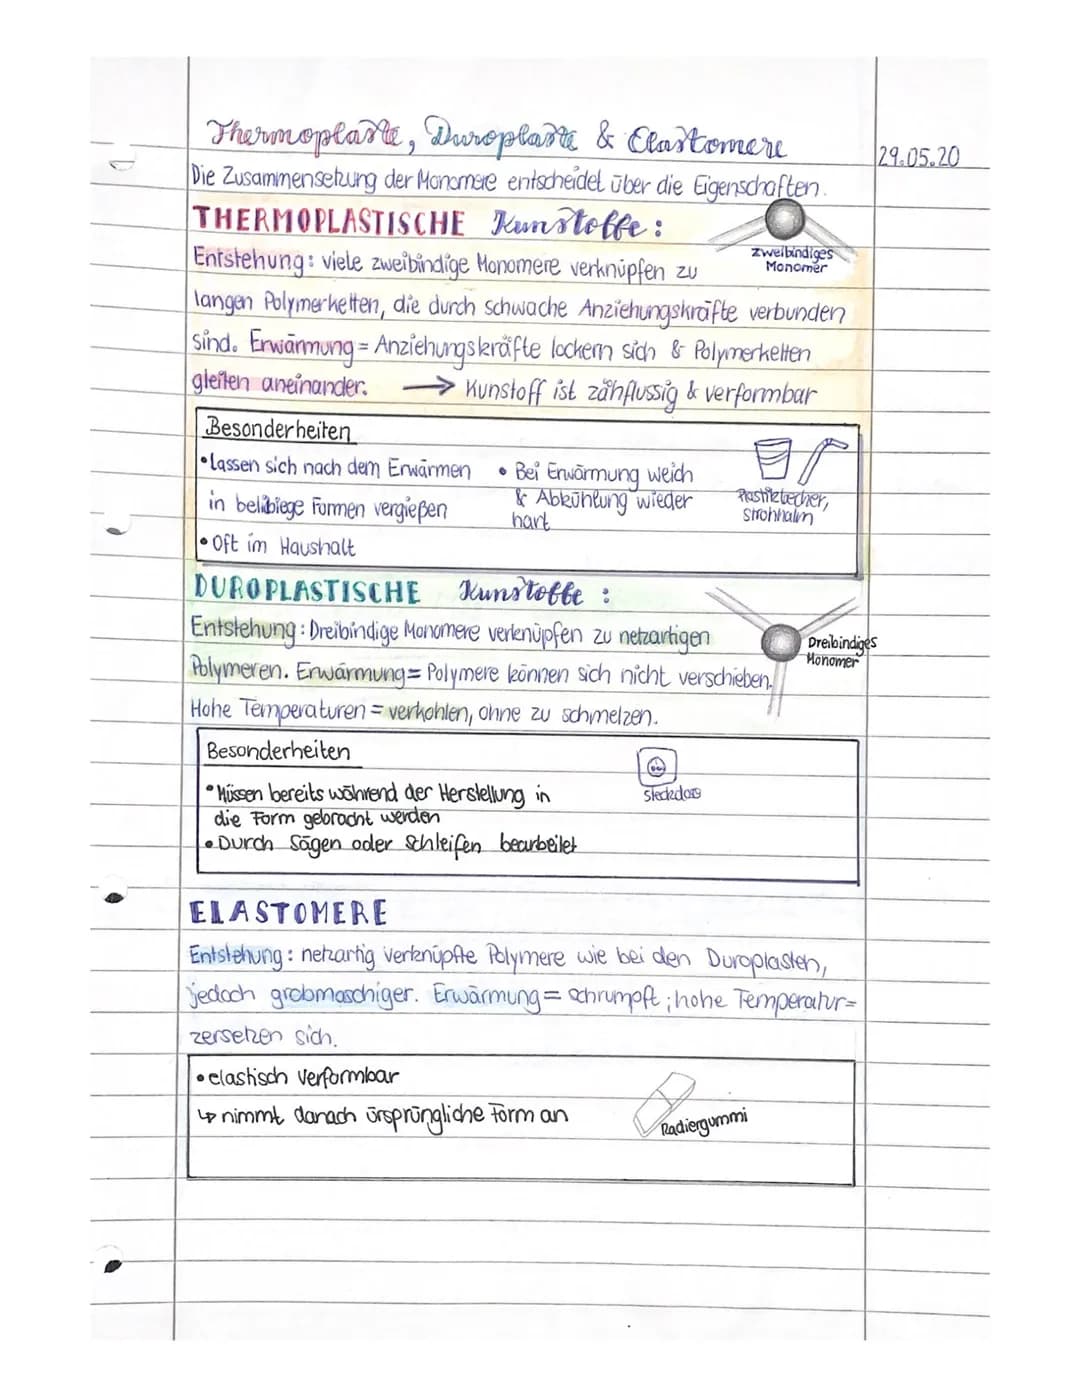 Thermoplaste, Duroplaste & Elastomere
29.05.20
Die Zusammensetzung der Monomere entscheidet über die Eigenschaften.
THERMOPLASTISCHE Kunstoffe:
zweibindiges
Monomer
Entstehung: viele zweibindige Monomere verknüpfen zu
langen Polymerketten, die durch schwache Anziehungskräfte verbunden
sind. Erwärmung = Anziehungskräfte lockern sich & Polymerketten
gleiten aneinander. → Kunstoff ist zähflüssig & verformbar
Besonderheiten
•lassen sich nach dem Erwärmen
in belibiege Formen vergießen
•Oft im Haushalt
• Bei Erwärmung weich
& Abkühlung wieder
hart
Plastikbecher,
Strohhalm
DUROPLASTISCHE Kunstoffe:
Entstehung: Dreibindige Monomere verknüpfen zu netzartigen
Dreibindiges
Monomer
Polymeren. Erwärmung= Polymere können sich nicht verschieben.
Hohe Temperaturen = verkohlen, ohne zu schmelzen.
Besonderheiten
•Müssen bereits während der Herstellung in
die Form gebracht werden
•Durch Sägen oder Schleifen bearbeitet
Steckdose
ELASTOMERE
Entstehung: netzartig verknüpfte Polymere wie bei den Duroplasten,
jedoch grobmaschiger. Erwärmung= schrumpft; hohe Temperatur=
zersetzen sich.
•elastisch verformbar
↳ nimmt danach ürsprüngliche Form an
Radiergummi